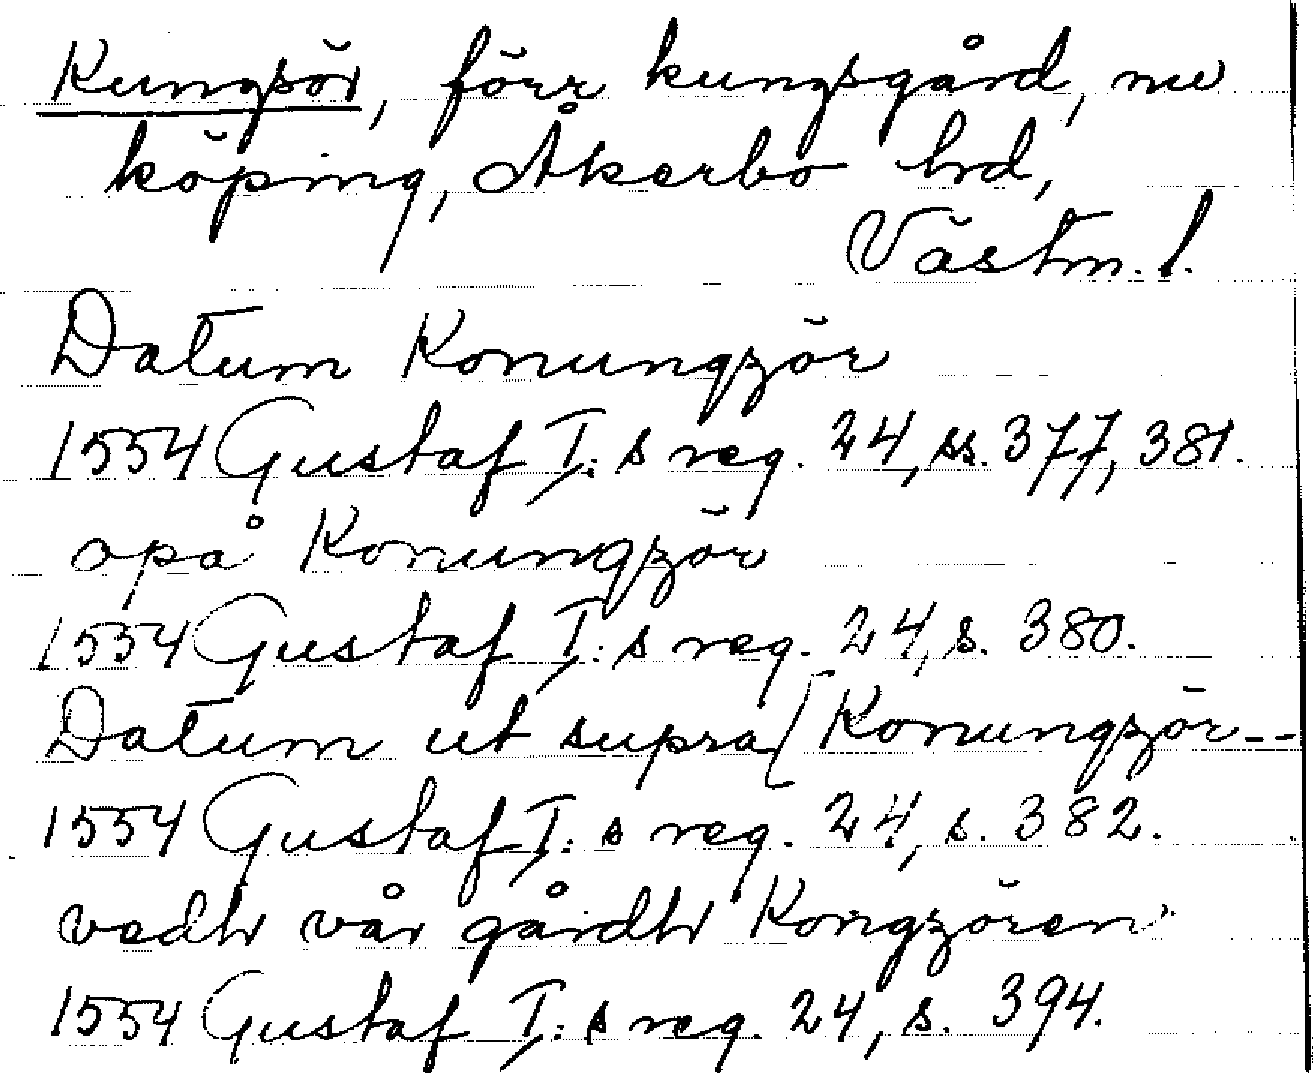 Kungsör, förr kungsgård, nu
köping, Åkerbo hd,
Västm. l.
Datum Konungzör
1554 Gustaf I:s reg. 24, ss. 377, 381.
opå Konungzör
1554 Gustaf I:s reg. 24, s. 380.
Datum ut supra [Konungzör--
1554 Gustaf I:s reg. 24, s. 382.
vedh vår gårdh Kongzören
1554 Gustaf I:s reg. 24, s. 394.